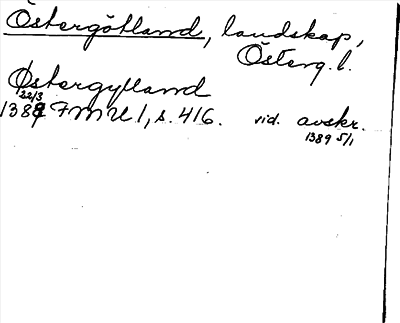 Östergötland, landskap,
Österg. l.
Østergylland
22/3
1388 FMU 1, s. 416. vid. avskr.
1389 5/1